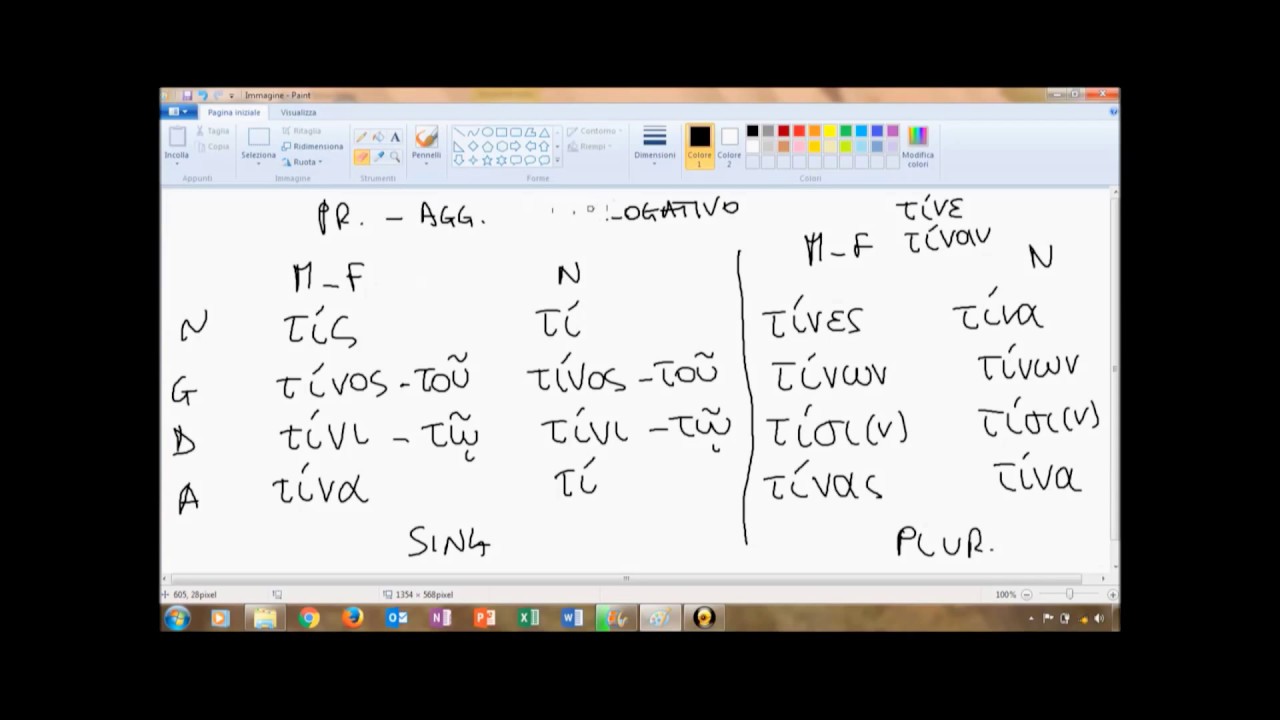 Immagine - Paint
Pagina iniziale Visualizza
Incolla Taglia Copia Seleziona Ritaglia Ridimensiona Ruota Pennelli Contorno Riempi Dimensioni Colore 1 Colore 2 Modifica colori
Appunti Immagine Strumenti Forme Colori
PR. - AGG. -OGATIVO τίνε
M-F N M-F τίναιν N
N τίς τί τίνες τίνα
G τίνος - τοῦ τίνος - τοῦ τίνων τίνων
D τίνι - τῷ τίνι - τῷ τίσι(ν) τίσι(ν)
A τίνα τί τίνας τίνα
SING PLUR.
605, 28pixel 1354 × 568pixel 100%